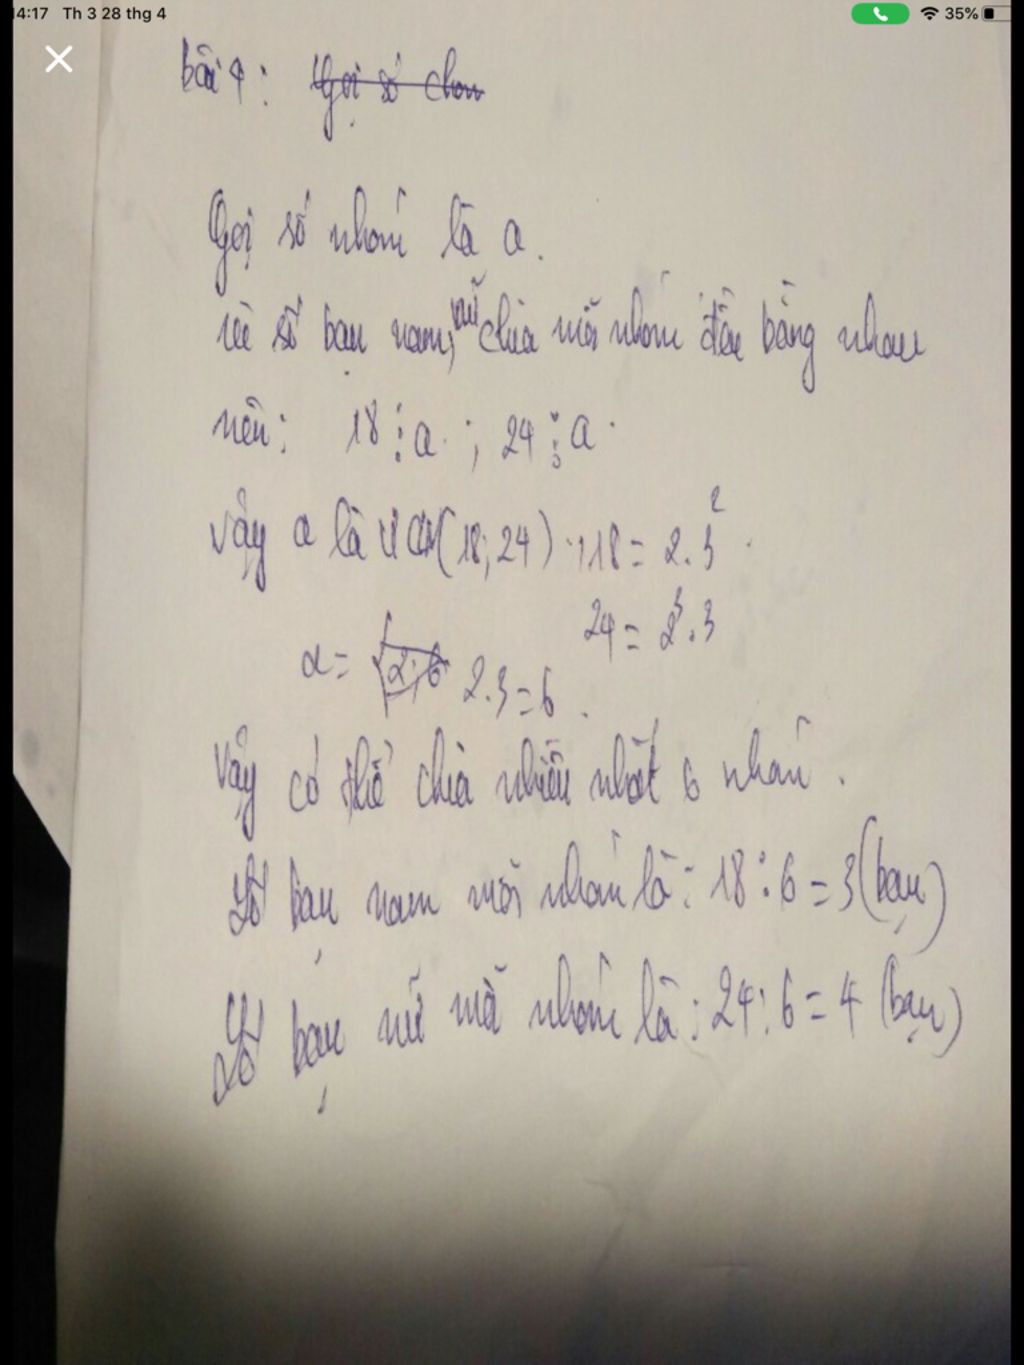 14:17 Th 3 28 thg 4 35%
bài 4: Gọi số chon
Gọi số nhóm là a.
vì số bạn nam, nữ chia mỗi nhóm đều bằng nhau
nên: 18 ⋮ a ; 24 ⋮ a.
Vậy a là ƯC (18; 24) ; 18 = 2.3²
24 = 2³.3
a = 2;6 2.3 = 6.
Vậy có thể chia nhiều nhất 6 nhóm.
Số bạn nam mỗi nhóm là: 18 : 6 = 3 (bạn)
Số bạn nữ mỗi nhóm là: 24 : 6 = 4 (bạn)